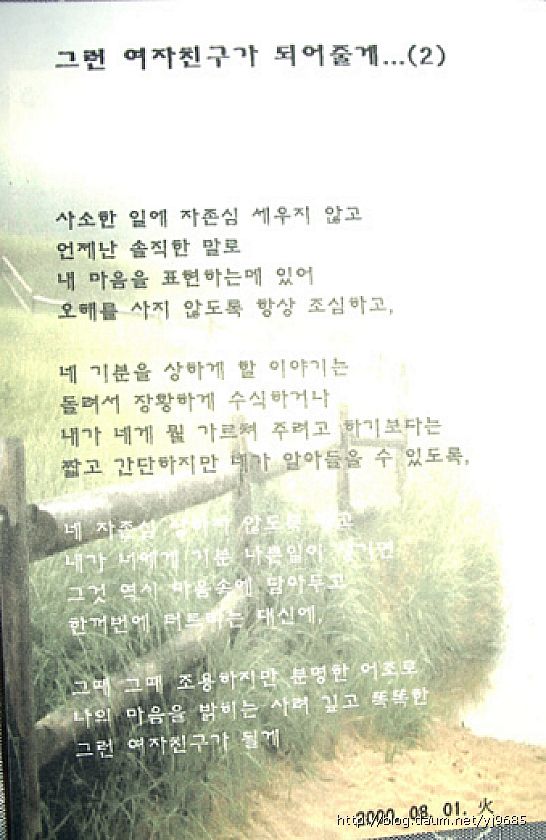 그런 여자친구가 되어줄게...(2)
사소한 일에 자존심 세우지 않고
언제난 솔직한 말로
내 마음을 표현하는메 있어
오해를 사지 않도록 항상 조심하고,
네 기분을 상하게 할 이야기는
돌려서 장황하게 수식하거나
내가 네게 뭘 가르쳐 주려고 하기보다는
짧고 간단하지만 네가 알아들을 수 있도록,
네 자존심 상하지 않도록 하고
내가 너에게 기분 나쁜일이 생기면
그것 역시 마음속에 담아두고
한꺼번에 터트리는 대신에,
그때 그때 조용하지만 분명한 어조로
나의 마음을 밝히는 사려 깊고 똑똑한
그런 여자친구가 될게
2000. 08. 01. 火
http://blog.daum.net/yj9685